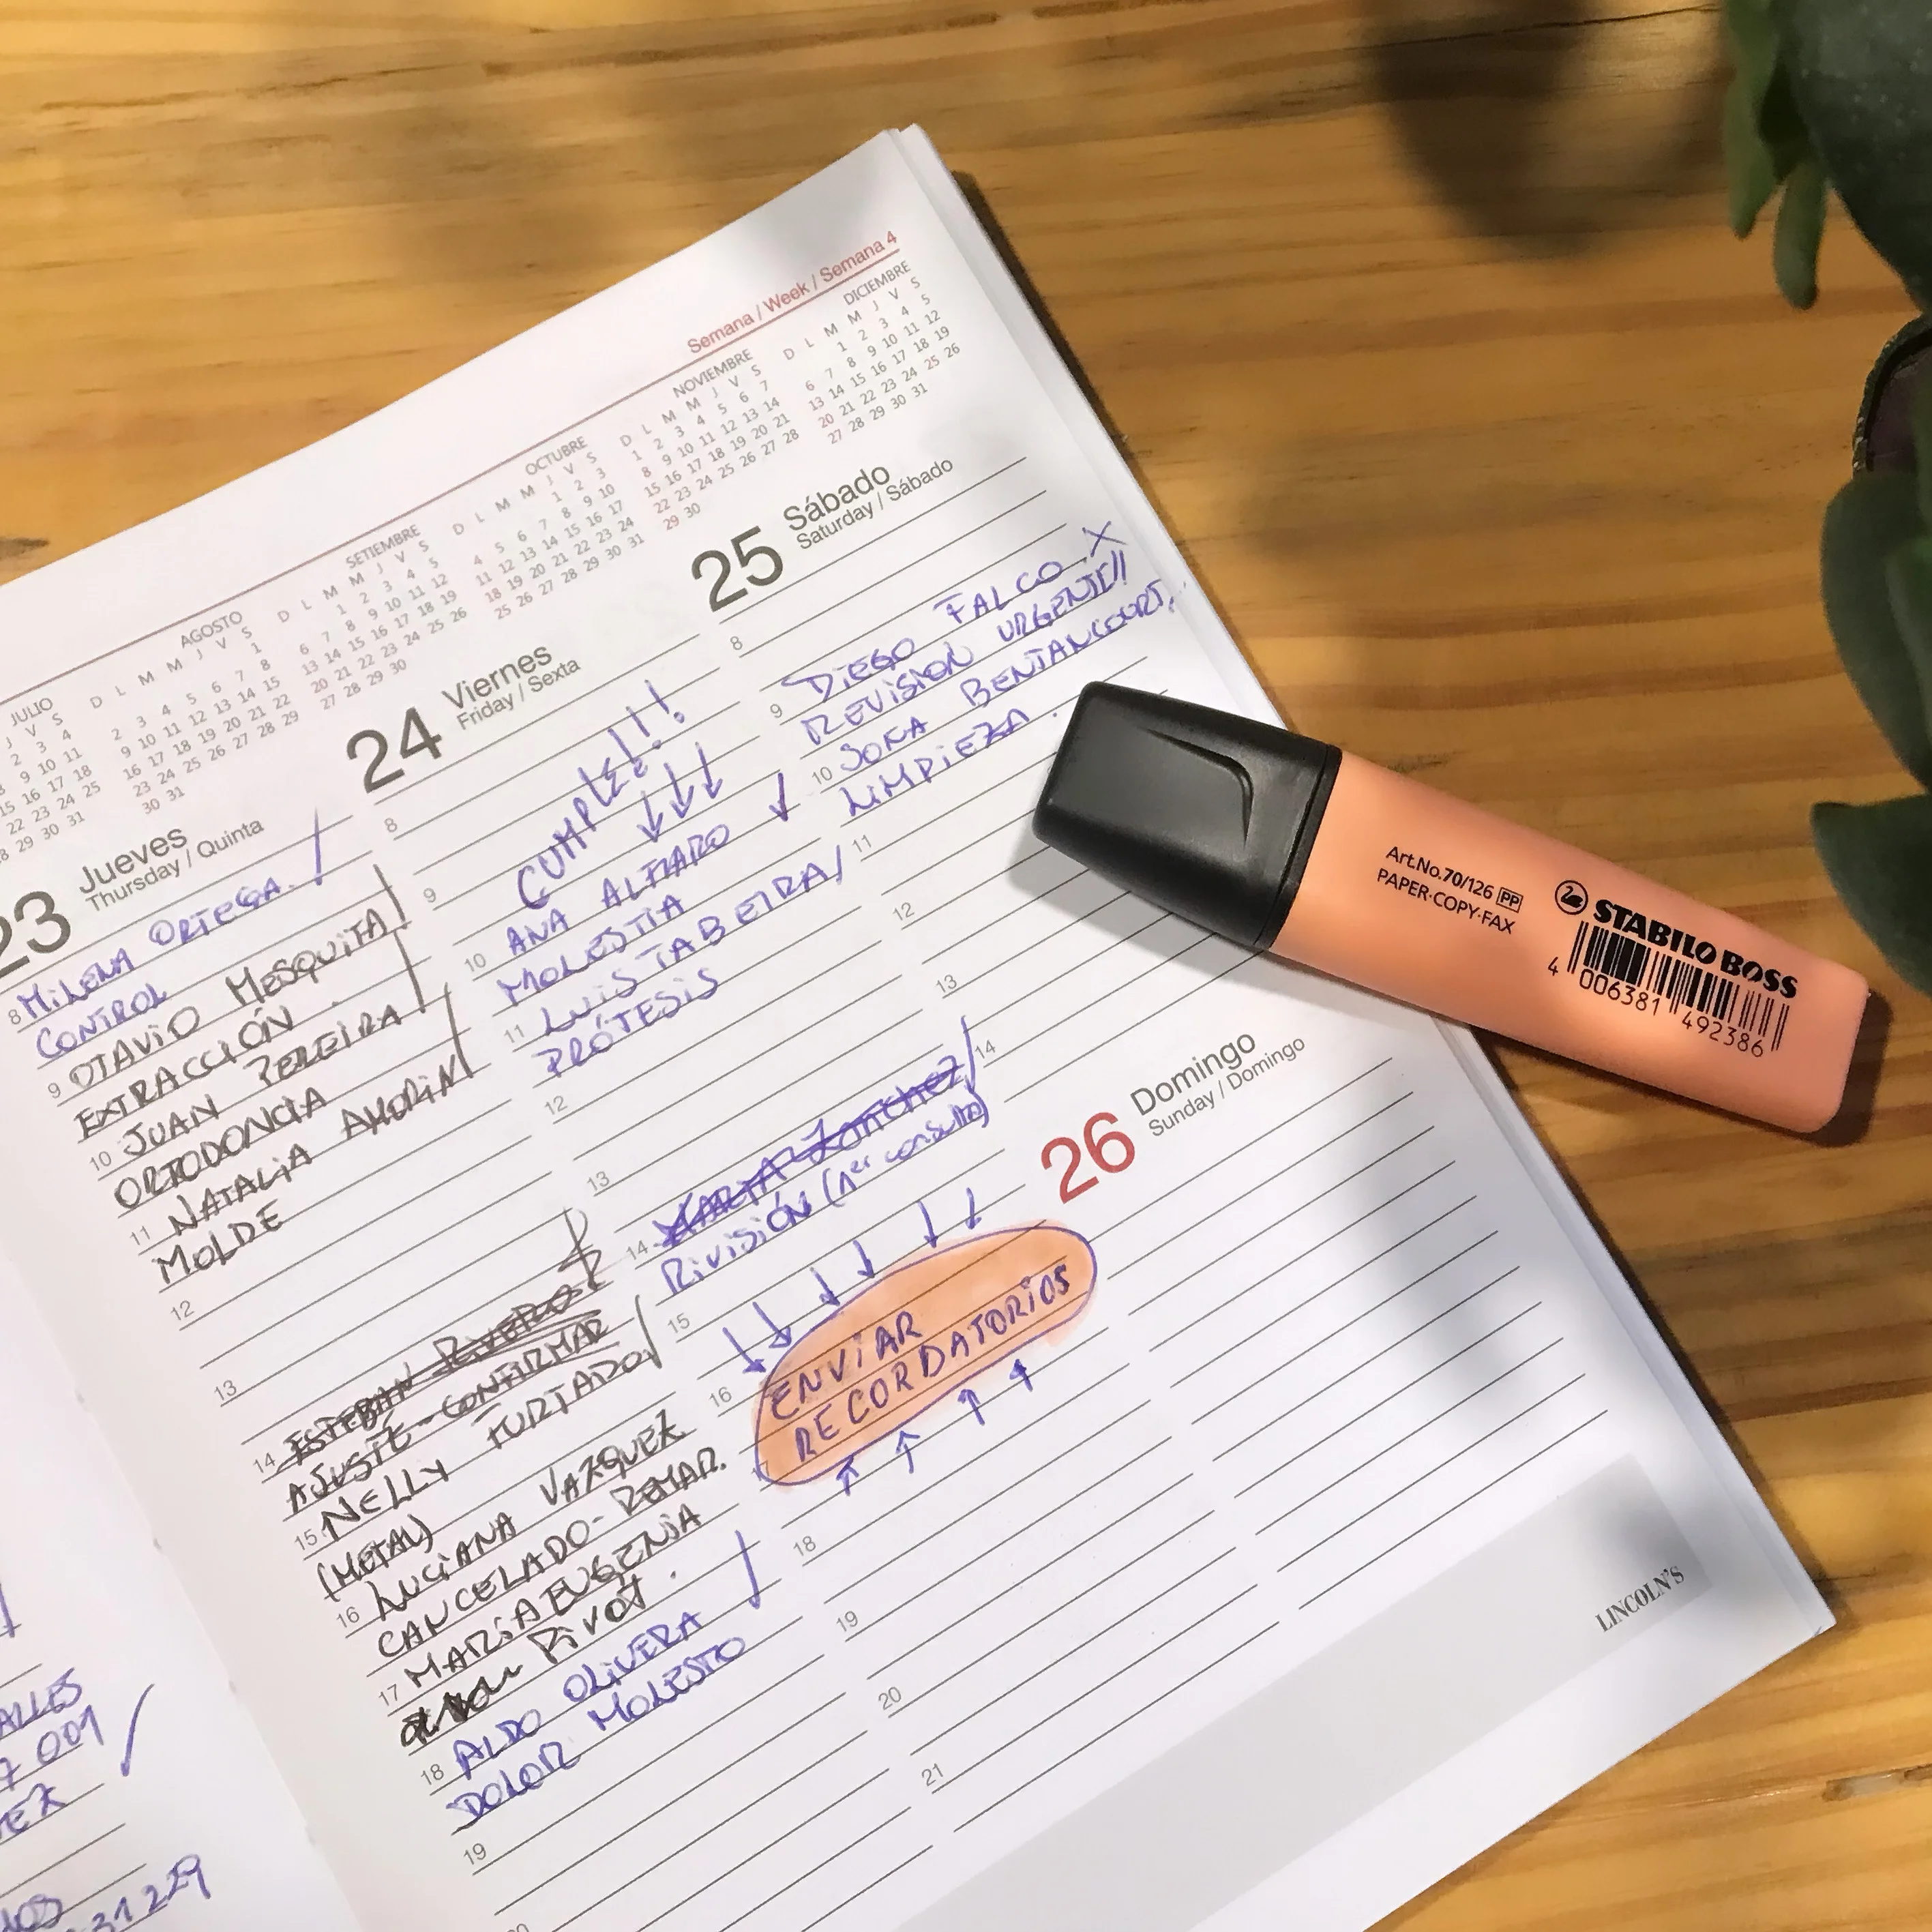 Semana / Week / Semana 4
JULIO
AGOSTO
SETIEMBRE
OCTUBRE
NOVIEMBRE
DICIEMBRE
J V S
2 3 4
9 10 11
15 16 17 18
22 23 24 25
28 29 30 31
D L M M J V S
1
2 3 4 5 6 7 8
9 10 11 12 13 14 15
16 17 18 19 20 21 22
23 24 25 26 27 28 29
30 31
D L M M J V S
1 2 3 4 5
6 7 8 9 10 11 12
13 14 15 16 17 18 19
20 21 22 23 24 25 26
27 28 29 30
D L M M J V S
1 2 3
4 5 6 7 8 9 10
11 12 13 14 15 16 17
18 19 20 21 22 23 24
25 26 27 28 29 30 31
D L M M J V S
1 2 3 4 5 6 7
8 9 10 11 12 13 14
15 16 17 18 19 20 21
22 23 24 25 26 27 28
29 30
D L M M J V S
1 2 3 4 5
6 7 8 9 10 11 12
13 14 15 16 17 18 19
20 21 22 23 24 25 26
27 28 29 30 31
23 Jueves
Thursday / Quinta
8 MILENA ORTEGA.
CONTROL
9 OTAVIO MESQUITA
EXTRACCIÓN
10 JUAN PEREIRA
ORTODONCIA
11 NATALIA AMORIN
MOLDE
12
13
14 ESTEBAN RIVERO
AJUSTE - CONFIRMAR
15 NELLY FURTADO
(METAL)
16 LUCIANA VAZQUEZ.
CANCELADO - REMAR.
17 MARIA EUGENIA
PIVOT.
18 ALDO OLIVERA
DOLOR MOLESTO
19
20
24 Viernes
Friday / Sexta
8
CUMPLE!!!
9
10 ANA ALFARO
MOLESTIA
11 LUIS TABEIRA
PRÓTESIS
12
13
14 MARTA Zanchez
RIVISIÓN (1er consulta)
15
16
ENVIAR
RECORDATORIOS
17
18
19
20
21
25 Sábado
Saturday / Sábado
8
DIEGO FALCO. X
9 REVISION URGENTE!!
10 SONA BENTANCOURT.
LIMPIEZA.
11
12
13
14
26 Domingo
Sunday / Domingo
LINCOLN'S
Art.No.70/126 PP
PAPER·COPY·FAX
STABILO BOSS
4 006381 492386
ALLES
7 001